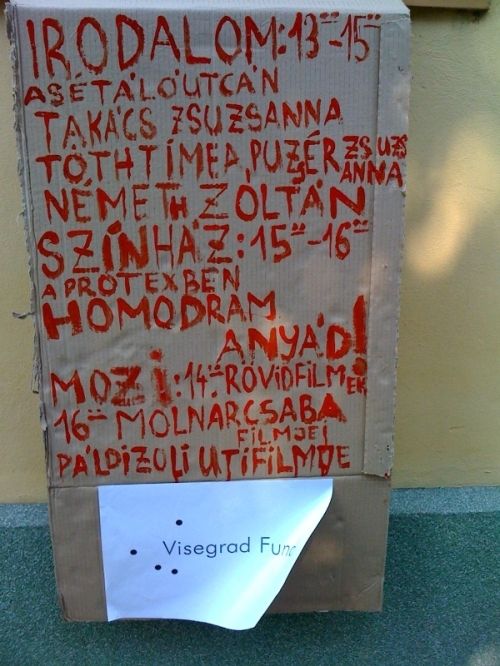 IRODALOM: 13⁰⁰-15⁰⁰
A SÉTÁLÓUTCÁN
TAKÁCS ZSUZSANNA
TÓTH TÍMEA, PUZSÉR ZSUZSANNA
NÉMETH ZOLTÁN
SZÍNHÁZ: 15⁰⁰-16⁰⁰
A PROTEXBEN
HOMODRAM
ANYÁD!
MOZI: 14⁰⁰ RÖVIDFILMEK
16⁰⁰ MOLNÁR CSABA
FILMJEI
PÁLDI ZOLI ÚTIFILMJE
Visegrad Func